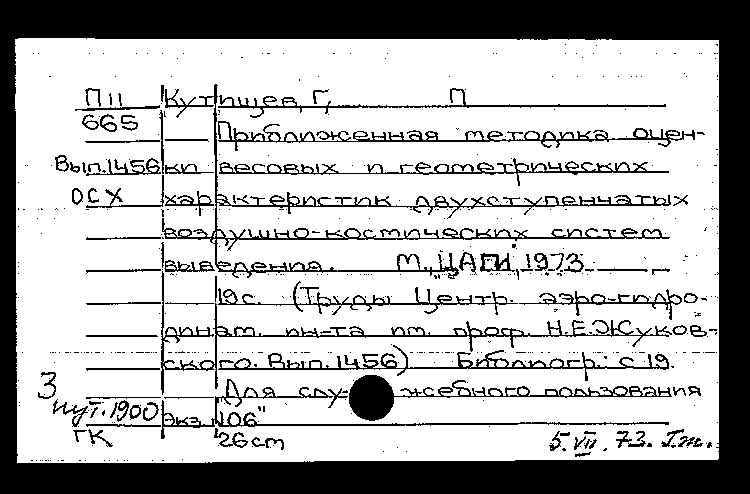 П11 Кутищев, Г, П
665 Приближенная методика оцен-
Вып.1456 ки весовых и геометрических
ОСХ характеристик двухступенчатых
воздушно-космических систем
выведения. М., ЦАГИ, 1973.
19с. (Труды Центр. аэро-гидро-
динам. ин-та им. проф. Н.Е.Жуков-
ского. Вып. 1456) Библиогр.: с 19.
3 „Для слу-жебного пользования
пут. 1900 экз. 106"
ГК 26cm 5.VII.73. Т.т.